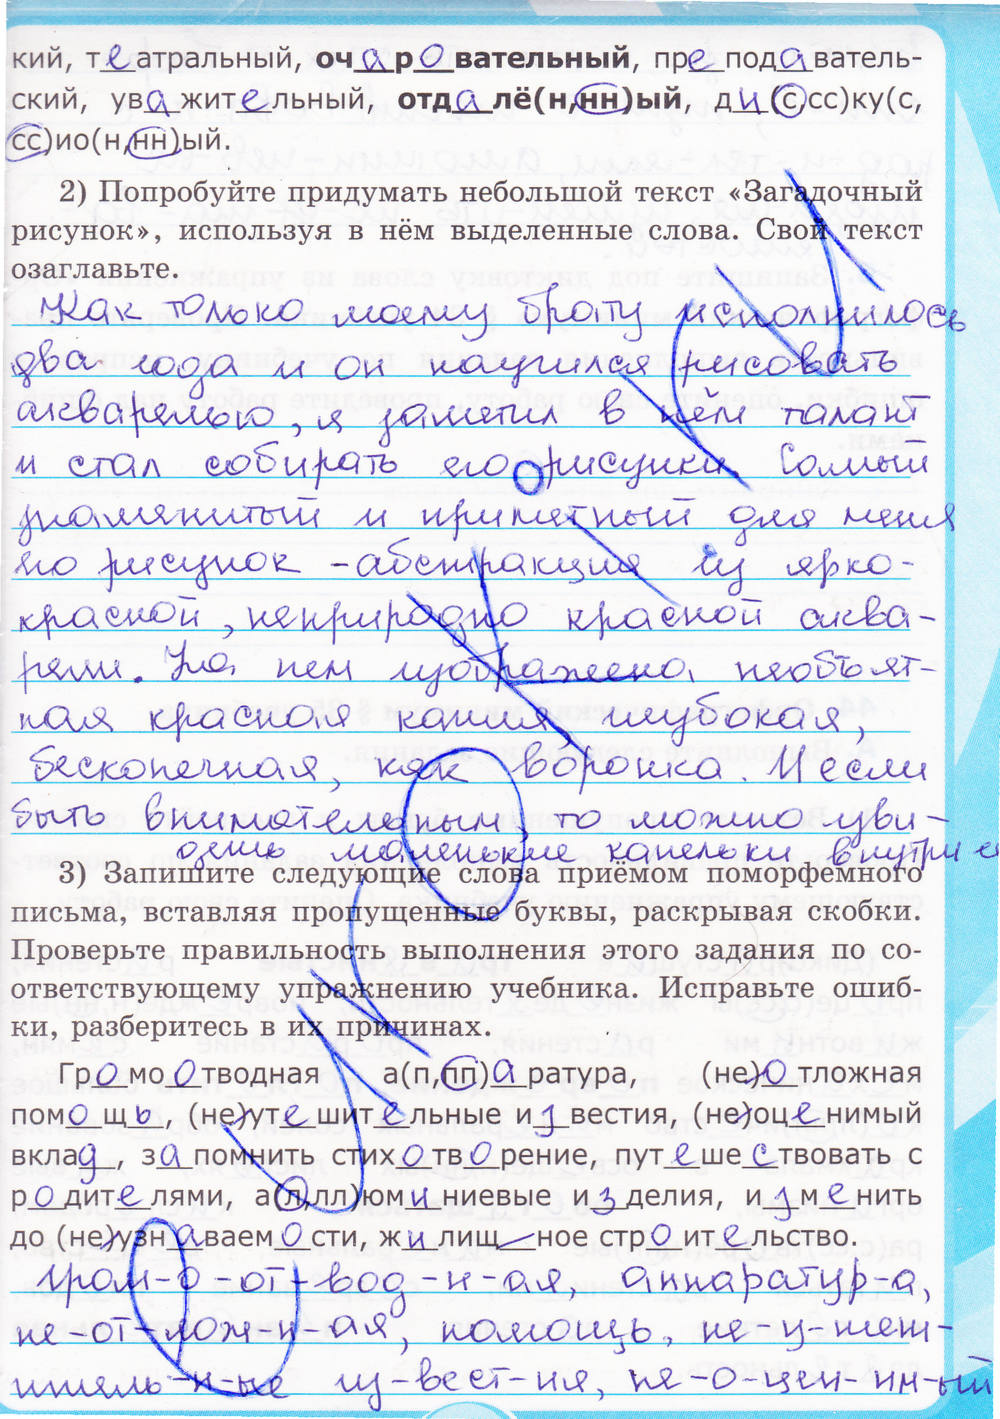 кий, театральный, очаровательный, преподаватель-
ский, уважительный, отдалё(н,нн)ый, ди(с,сс)ку(с,
сс)ио(н,нн)ый.
2) Попробуйте придумать небольшой текст «Загадочный
рисунок», используя в нём выделенные слова. Свой текст
озаглавьте.
Как только моему брату исполнилось
два года и он научился рисовать
акварелью, я заметил в нём талант
и стал собирать его рисунки. Самый
знаменитый и приметный для меня
его рисунок - абстракция из ярко-
красной, неприродно красной аква-
рели. На нем изображена необъят-
ная красная капля, глубокая,
бесконечная, как воронка. И если
быть внимательным, то можно уви-
деть маленькие капельки внутри её
3) Запишите следующие слова приёмом поморфемного
письма, вставляя пропущенные буквы, раскрывая скобки.
Проверьте правильность выполнения этого задания по со-
ответствующему упражнению учебника. Исправьте ошиб-
ки, разберитесь в их причинах.
Громоотводная а(п,пп)аратура, (не)отложная
помощь, (не)утешительные известия, (не)оценимый
вклад, запомнить стихотворение, путешествовать с
родителями, а(л,лл)юминиевые изделия, изменить
до (не)узнаваемости, жилищ_ное строительство.
Гром-о-от-вод-н-ая, аппаратур-а,
не-от-лож-н-ая, помощь, не-у-теш-
итель-н-ые из-вест-ия, не-о-цен-им-ый